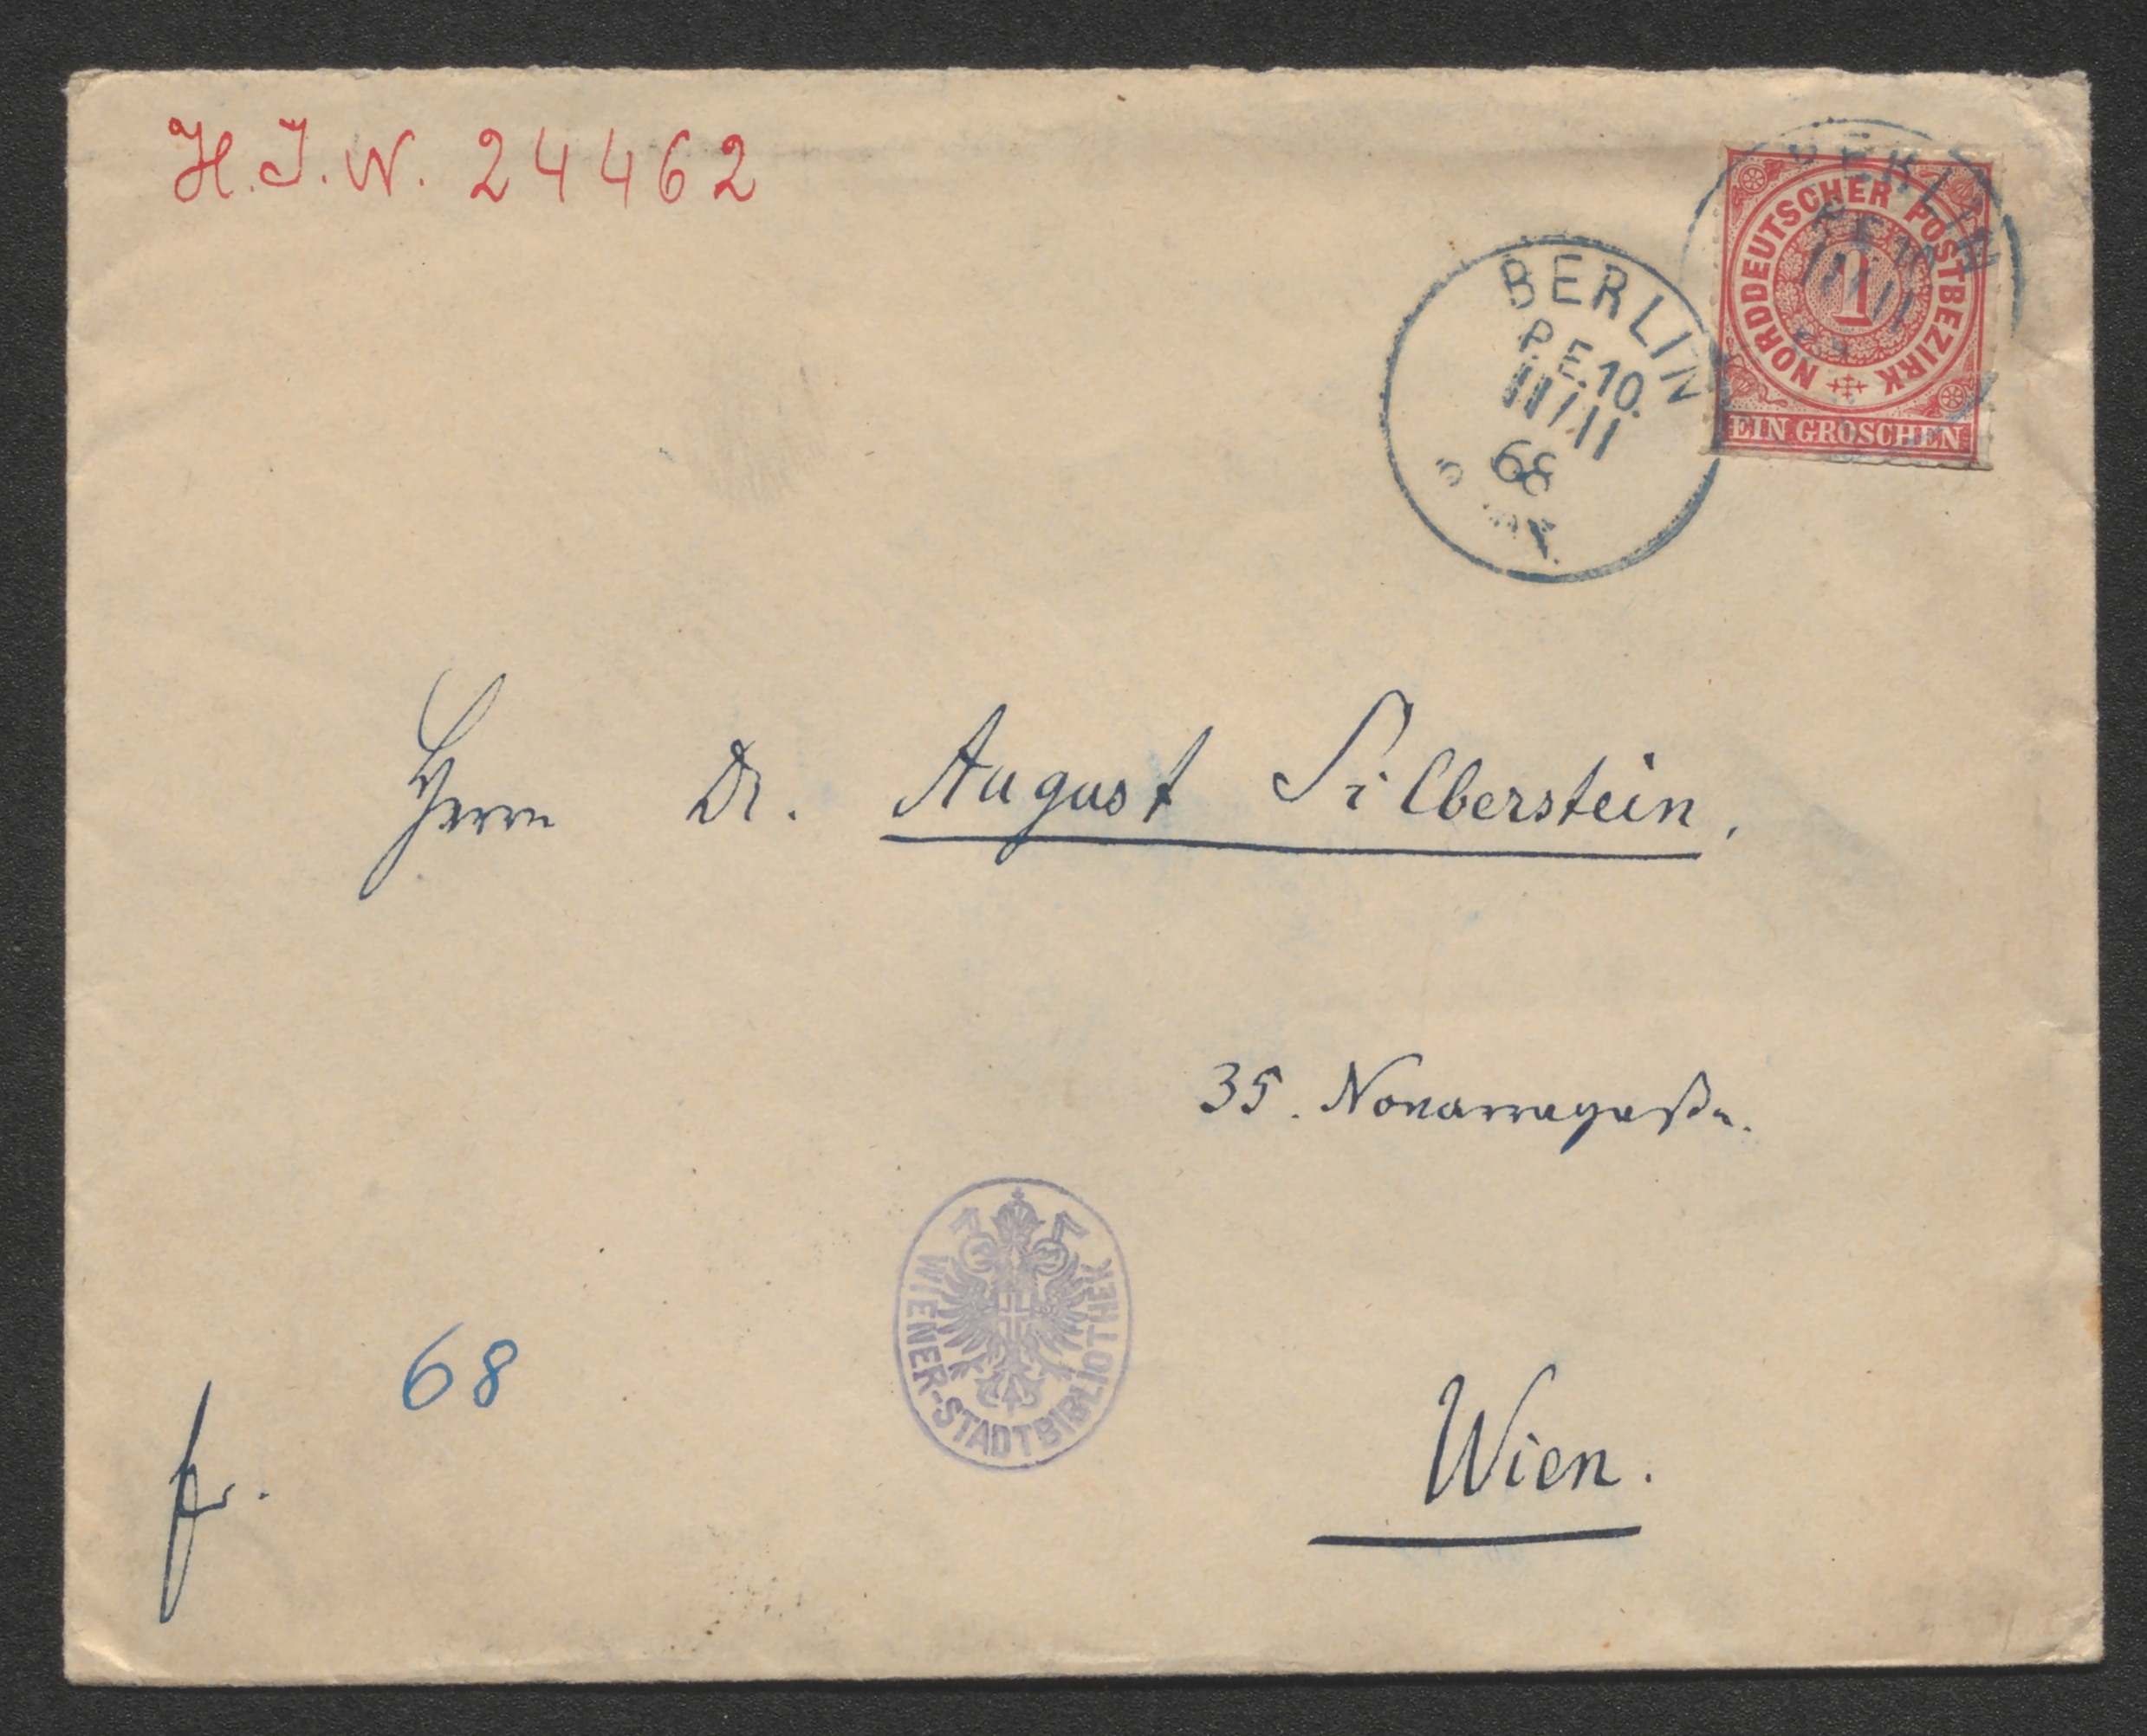 H. I. N. 24462
BERLIN
P. E. 10.
11/11
68
NORDDEUTSCHER POSTBEZIRK
1
EIN GROSCHEN
Herrn Dr. August Silberstein,
35. Novarragaße.
WIENER-STADTBIBLIOTHEK
68
fr.
Wien.